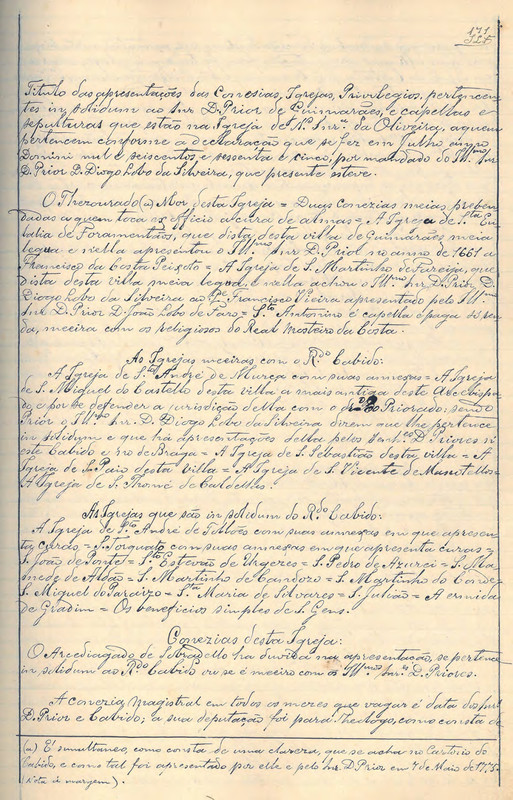 171
Titulo das apresentações das Conesias, Igrejas, Privilegios, pertencen
tes in solidum ao Snr. D. Prior de Guimarães, e capellas e
sepulturas que estão na Igreja de N.ª Snr.ª da Oliveira, a quem
pertencem conforme a declaração que se fez em Julho anno
Domini mil e seiscentos, e sessenta e cinco, por mandado do Ill.mo Snr
D. Prior D. Diogo Lobo da Silveira, que presente esteve.
O Thezourado (a) Mor desta Igreja = Duas Conezias meias preben
dadas a quem toca o officio a cura de almas = A Igreja de S.ta Eu
lalia de Foramentãos, que dista desta villa de Guimarães meia
legua e nella apresentou o Ill.mo Snr D. Prior no anno de 1661 a
Francisco da Costa Peixoto = A Igreja de S. Martinho de Fareja, que
dista desta villa meia legua, e nella achou o Ill.mo Snr D. Prior D.
Diogo Lobo da Silveira ao P.e Francisco Vieira apresentado pelo Ill.mo
Snr D. Prior D. João Lobo de Faro = S.to Antonino é capella e paga só ren
da, meeira com os religiosos do Real Mosteiro da Costa.
As Igrejas meeiras com o R.do Cabido:
A Igreja de S.to André de Murça com suas annexas = A Igreja
de S. Miguel do Castello desta villa a mais antiga deste Arcebispa
do e por se defender a jurisdição della com o Priorado: sendo
Prior o Ill.mo Snr. D. Diogo Lobo da Silveira dizem que lhe pertence
in solidum e que ha apresentações della pelos Snr.es D. Priores n'
este Cabido e no de Braga = A Igreja de S. Sebastião desta villa = A
Igreja de S. Paio desta villa = A Igreja de S. Vicente de Mascotellos =
A Igreja de S. Thomé de Caldellas.
As Igrejas que são in solidum do R.do Cabido:
A Igreja de S.to André de Telões com suas annexas em que apresen
ta curas = S. Torquato com suas annexas em que apresenta curas =
S. João de Ponte = S.to Estevão de Urgezes = S. Pedro de Azurei = S. Ma
mede de Aldão = S. Martinho de Candozo = S. Martinho do Conde =
S. Miguel do Paraizo = S.ta Maria de Silvares = S. Julião = A ermida
de Gradim = Os beneficios simples de S. Gens.
Conezias desta Igreja:
O Arcediagado de Sobradello ha duvida na apresentação, se pertence
in solidum ao R.do Cabido ou se é meeiro com os Ill.mos Snr.es D. Priores.
A conezia Magistral em todos os mezes que vagar é data dos Snr
D. Prior e Cabido; a sua deputação foi para Theologo, como consta de
(a) É simultaneo, como consta de uma clareza, que se acha no Cartorio do
Cabido, e como tal foi apresentado por elle e pelo Snr D. Prior em 7 de Maio de
(nota á margem).